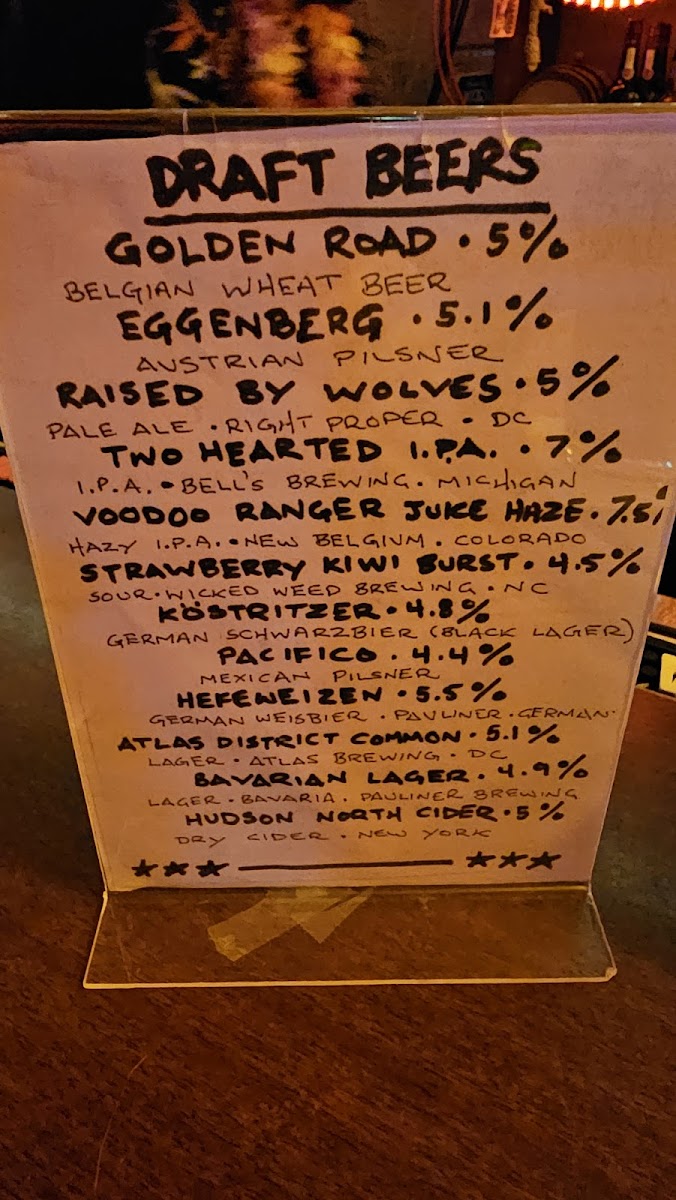 DRAFT BEERS
GOLDEN ROAD · 5%
BELGIAN WHEAT BEER
EGGENBERG · 5.1%
AUSTRIAN PILSNER
RAISED BY WOLVES · 5%
PALE ALE · RIGHT PROPER · DC
TWO HEARTED I.P.A. · 7%
I.P.A. · BELL'S BREWING. MICHIGAN
VOODOO RANGER JUICE HAZE · 7.5%
HAZY I.P.A. · NEW BELGIUM. COLORADO
STRAWBERRY KIWI BURST · 4.5%
SOUR · WICKED WEED BREWING · NC
KÖSTRITZER · 4.8%
GERMAN SCHWARZBIER (BLACK LAGER)
PACIFICO · 4.4%
MEXICAN PILSNER
HEFEWEIZEN · 5.5%
GERMAN WEISBIER · PAULINER · GERMAN
ATLAS DISTRICT COMMON · 5.1%
LAGER · ATLAS BREWING · DC
BAVARIAN LAGER · 4.9%
LAGER · BAVARIA · PAULINER BREWING
HUDSON NORTH CIDER · 5%
DRY CIDER · NEW YORK